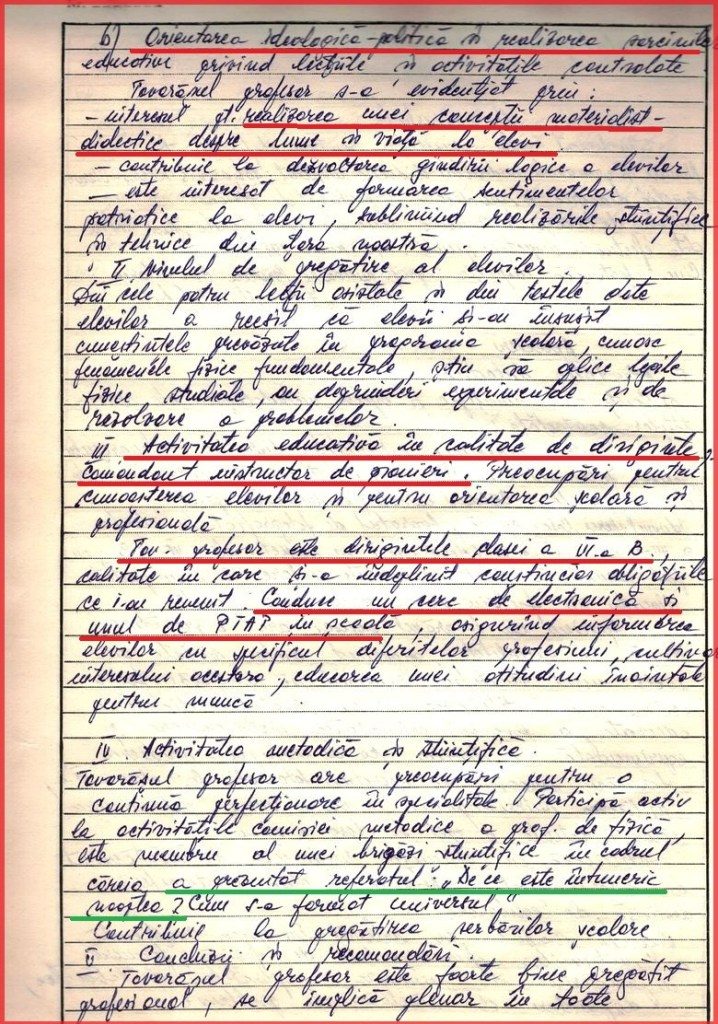 b) Orientarea ideologică-politică în realizarea sarcinilor
educative privind lecțiile și activitățile controlate
Tovarășul profesor s-a evidențiat prin:
- interesul pt. realizarea unei concepții materialist-
didectice despre lume și viață la elevi.
- contribuie la dezvoltarea gîndirii logice a elevilor
- este interesat de formarea sentimentelor
patriotice la elevi, subliniind realizările științifice
și tehnice din țara noastră.
II Nivelul de pregătire al elevilor.
Din cele patru lecții asistate și din testele date
elevilor a reeșit că elevii și-au însușit
cunoștințele prevăzute în programa școlară, cunosc
fenomenele fizice fundamentale, știu să aplice legile
fizice studiate, au deprinderi experimentale și de
rezolvare a problemelor.
III Activitatea educativă în calitate de diriginte,
Comandant instructor de pionieri. Preocupări pentru
cunoașterea elevilor și pentru orientarea școlară și
profesională
Tov. profesor este dirigintele clasei a VII-a B,
calitate în care și-a îndeplinit conștiincios obligațiile
ce i-au revenit. Conduce un cerc de electronică și
unul de PTAP în școală, asigurînd informarea
elevilor cu specificul diferitelor profesiuni, cultivarea
interesului acestora, educarea unei atitudini înaintate
pentru muncă
IV. Activitatea metodică și științifică.
Tovarășul profesor are preocupări pentru o
continuă perfecționare în specialitate. Participă activ
la activitățile comisiei metodice a prof. de fizică,
este membru al unei brigăzi științifice în cadrul
căreia a prezentat referatul: „De ce este întuneric
noaptea? Cum s-a format universul"
Contribuie la pregătirea serbărilor școlare.
V Concluzii și recomandări.
Tovarășul profesor este foarte bine pregătit
profesional, se implică plenar în toate